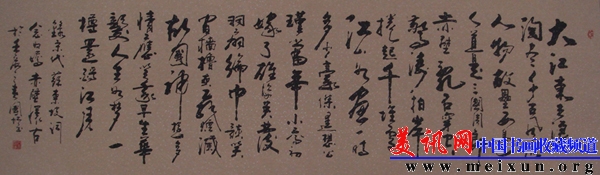 大江東去浪
淘盡千古風流
人物故壘西邊
人道是三國周郎
赤壁亂石穿空
驚濤拍岸
捲起千堆雪
江山如畫一時
多少豪傑遙想公
瑾當年小喬初
嫁了雄姿英發
羽扇綸巾談笑
間檣櫓灰飛煙滅
故國神遊多
情應笑我早生華
髮人生如夢一
樽還酹江月
錄宋代蘇東坡詞
念奴嬌赤壁懷古
美讯网 中国书画收藏频道
www.meixun.org